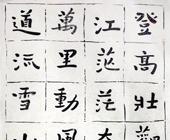 登高壯觀
江茫茫去
萬里動風
道流雪山